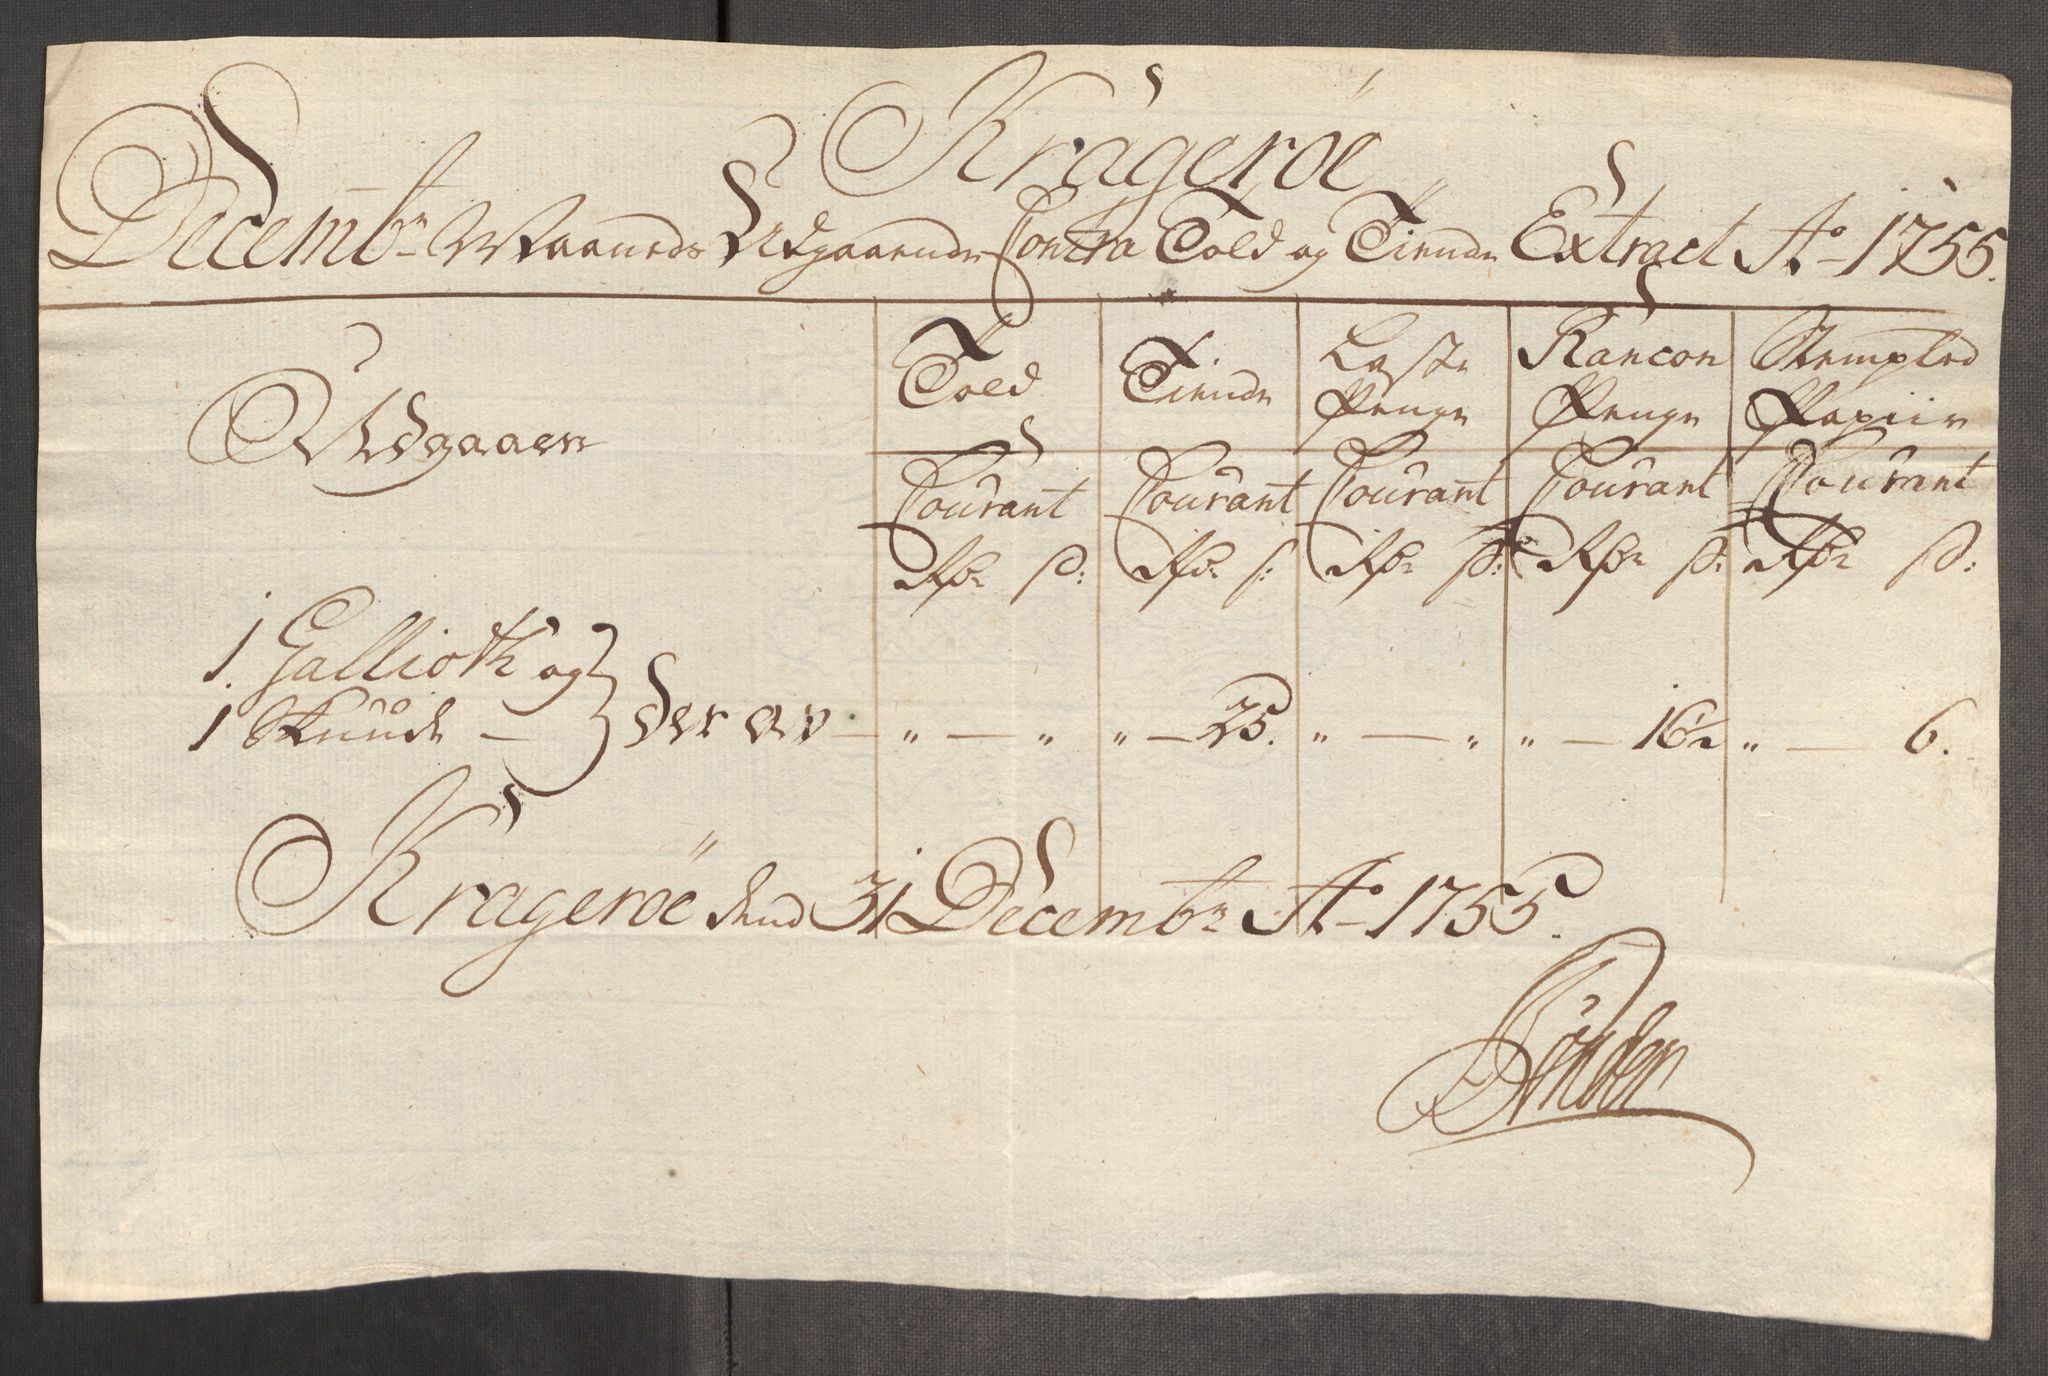 Kragerøe
Decembr Maaneds Udgaaende Contra Told og Tiende Extract Ao 1755.
Udgaaen
Told
Tiende
Laste Penge
Rancon Penge
Stempled Papiir
Courant Courant Courant Courant Courant
Rdr ß: Rdr ß: Rdr ß: Rdr ß: Rdr ß:
1 Gallioth og
1 Skuude — } Der av — „ — „ „ — 25. „ — „ „ — 16½ „ — 6.
Kragerøe dend 31 Decembr Ao 1755.